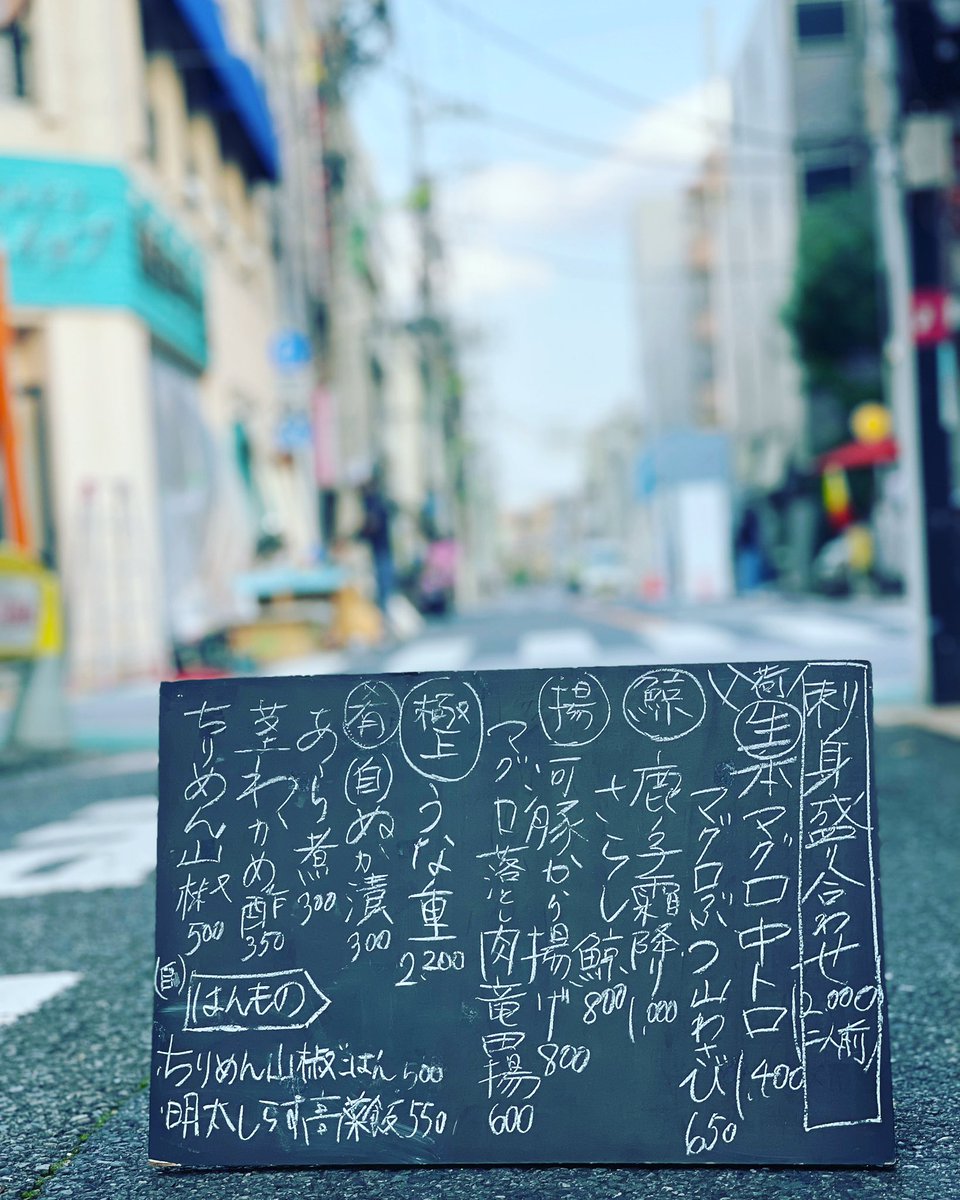 刺身盛り合わせ 2,000 (二人前)
荷
生本マグロ中トロ 1,400
マグロぶつ山わさび 650
鯨 鹿子霜降り 1,000
さらし鯨 800
揚 河豚から揚げ 800
マグロ落とし肉竜田揚 600
極上 うな重 2200
有 自 ぬか漬 300
あら煮 300
茎わかめ酢 350
ちりめん山椒 500
自 はんもの
ちりめん山椒ごはん 500
明太しらす高菜飯 550